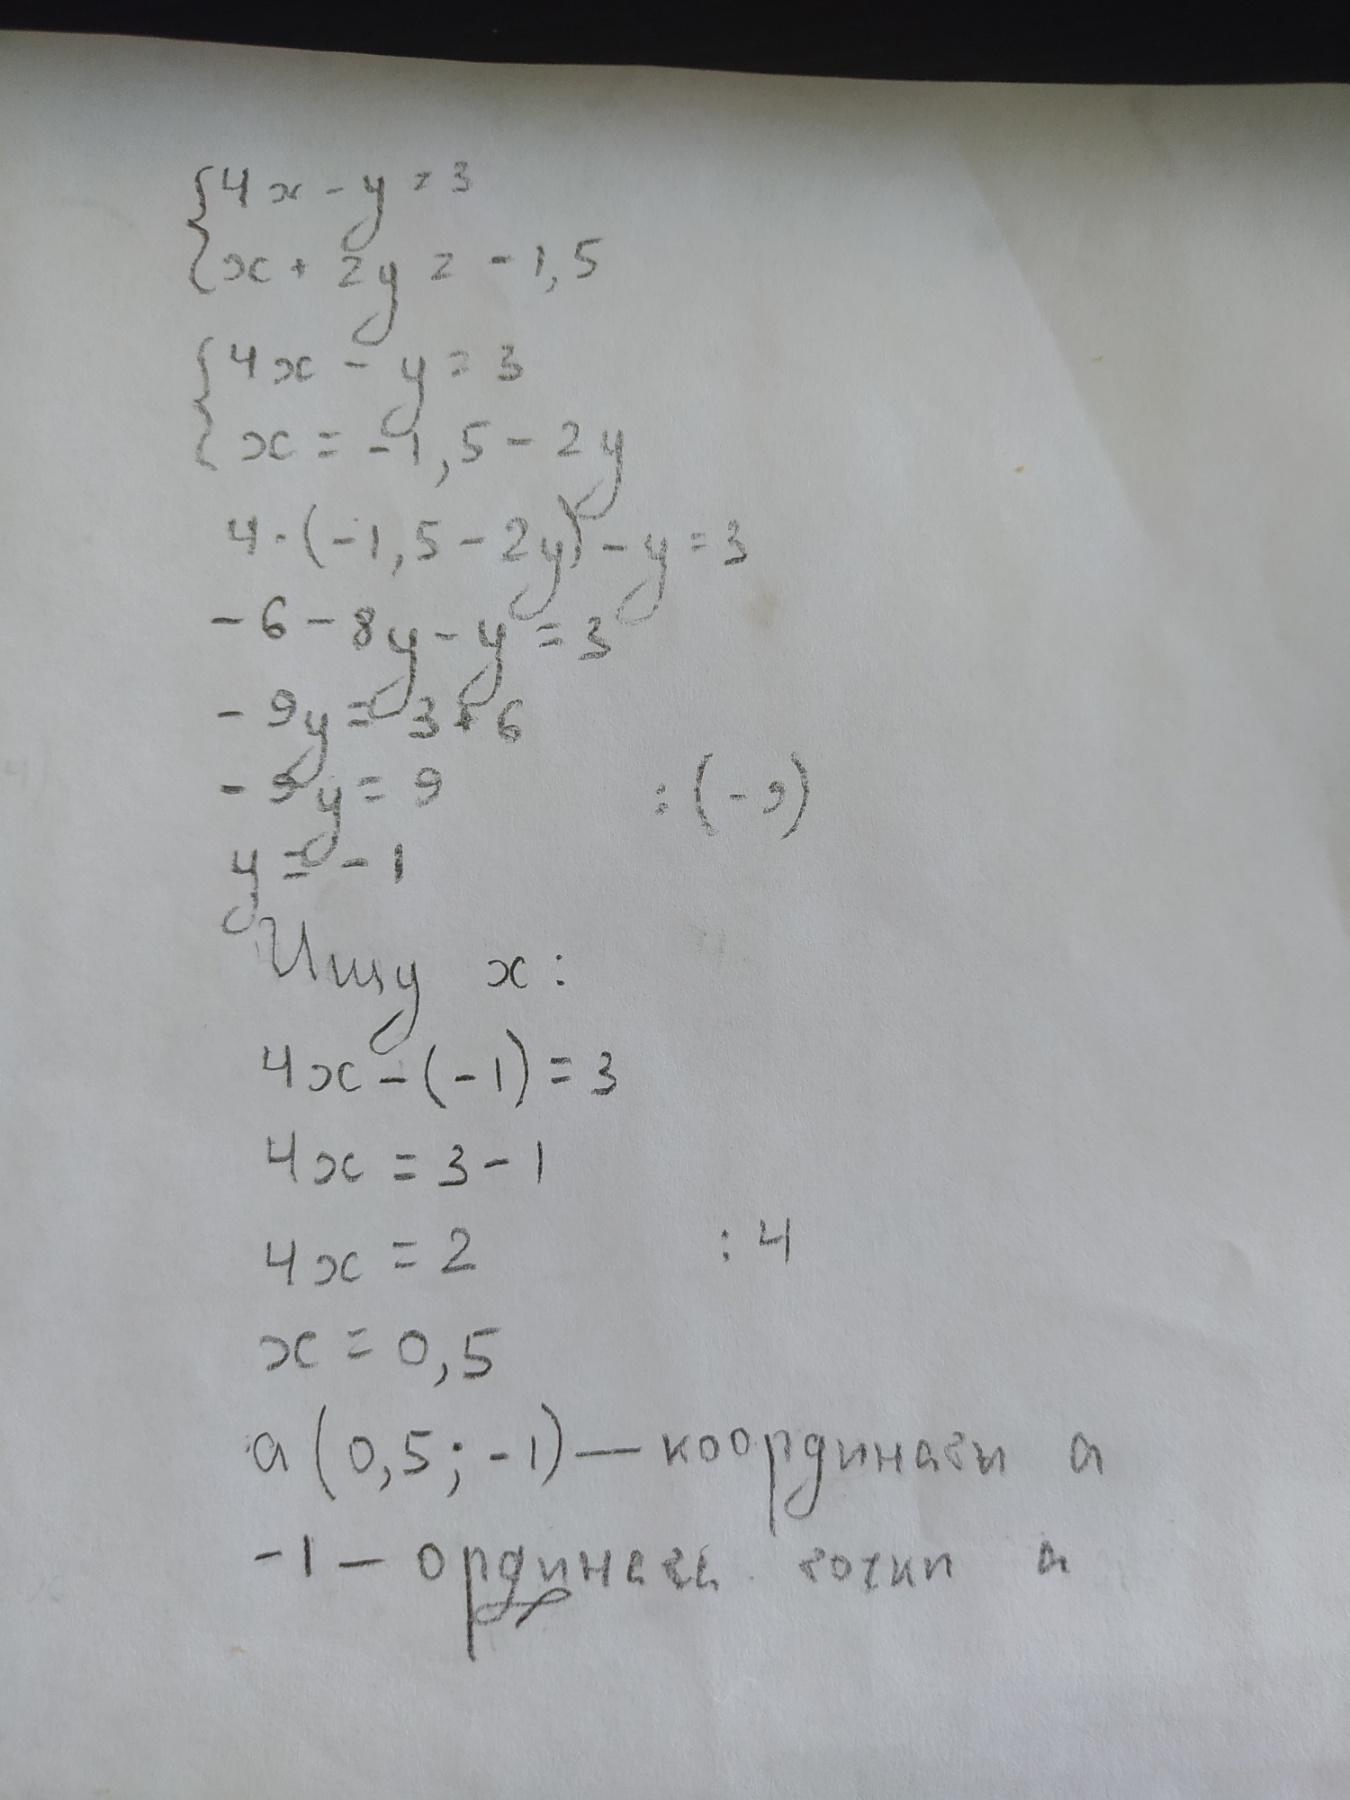 {4x - y = 3
{x + 2y = -1,5
{4x - y = 3
{x = -1,5 - 2y
4·(-1,5 - 2y) - y = 3
-6 - 8y - y = 3
-9y = 3+6
-9y = 9 :(-9)
y = -1
Ищу x:
4x - (-1) = 3
4x = 3 - 1
4x = 2 :4
x = 0,5
a (0,5; -1) — координаты a
-1 — ордината точки a